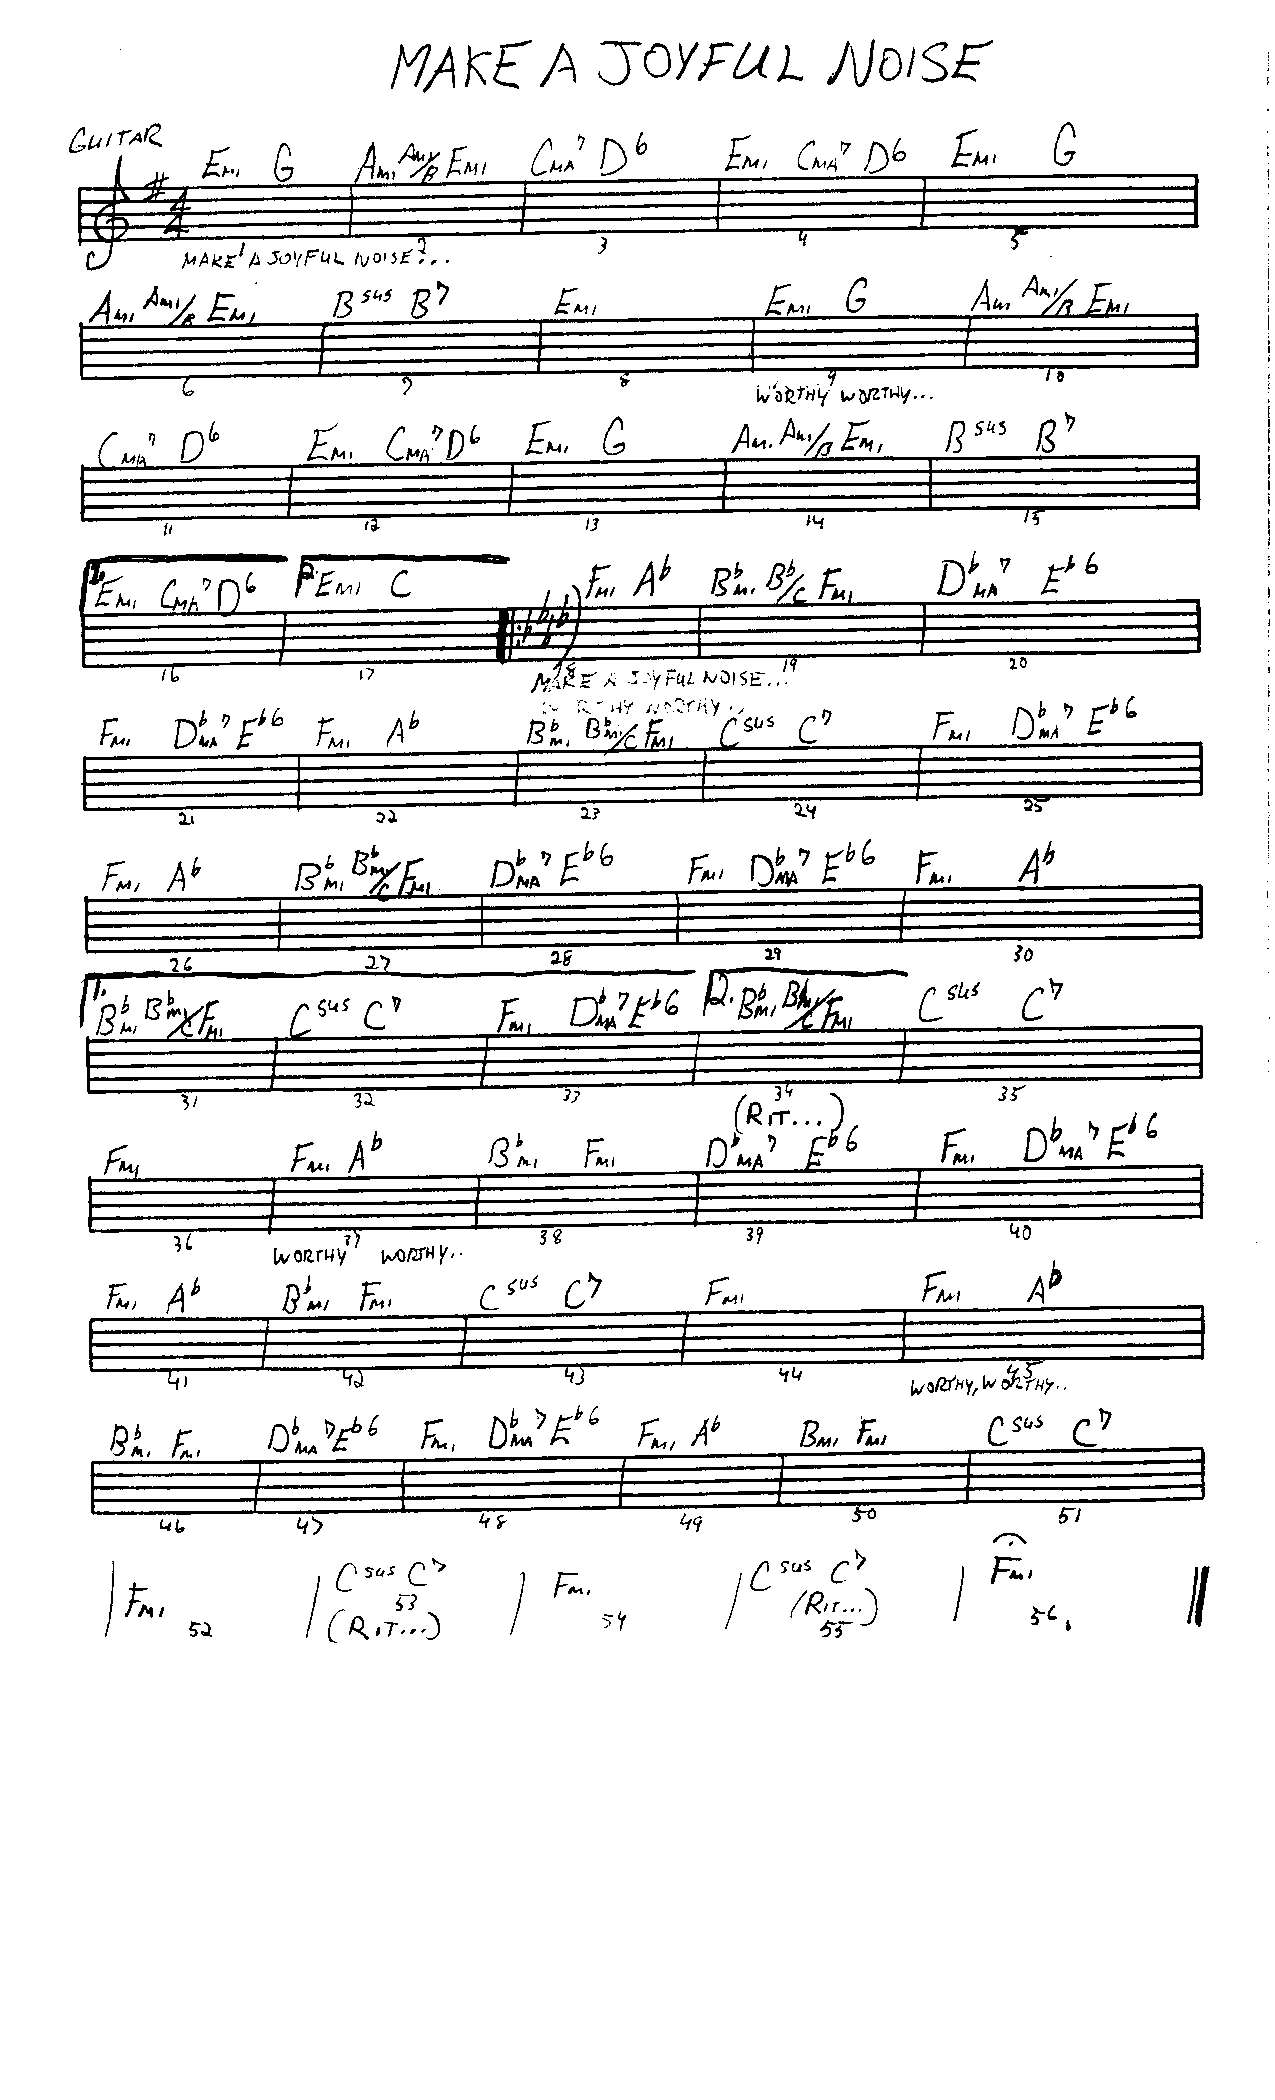 MAKE A JOYFUL NOISE
GUITAR
Emi G Ami Ami/B Emi Cma7 D6 Emi Cma7 D6 Emi G
4/4
1 2 3 4 5
MAKE A JOYFUL NOISE...
Ami Ami/B Emi Bsus B7 Emi Emi G Ami Ami/B Emi
6 7 8 9 10
WORTHY WORTHY...
Cma7 D6 Emi Cma7 D6 Emi G Am. Ami/B Emi Bsus B7
11 12 13 14 15
1. Emi Cma7 D6 2. Emi C Fmi Ab Bbmi Bb/C Fmi Dbma7 Eb6
16 17 18 19 20
MAKE A JOYFUL NOISE...
WORTHY WORTHY..
Fmi Dbma7 Eb6 Fmi Ab Bbmi Bbmi/C Fmi Csus C7 Fmi Dbma7 Eb6
21 22 23 24 25
Fmi Ab Bbmi Bbmi/C Fmi Dbma7 Eb6 Fmi Dbma7 Eb6 Fmi Ab
26 27 28 29 30
1. Bbmi Bbmi/C Fmi Csus C7 Fmi Dbma7 Eb6 2. Bbmi Bbmi/C Fmi Csus C7
31 32 33 34 35
(RIT...)
Fmi Fmi Ab Bbmi Fmi Dbma7 Eb6 Fmi Dbma7 Eb6
36 37 38 39 40
WORTHY WORTHY..
Fmi Ab Bbmi Fmi Csus C7 Fmi Fmi Ab
41 42 43 44 45
WORTHY, WORTHY..
Bbmi Fmi Dbma7 Eb6 Fmi Dbma7 Eb6 Fmi Ab Bmi Fmi Csus C7
46 47 48 49 50 51
Fmi Csus C7 Fmi Csus C7 Fmi
52 53 54 55 56.
(RIT...) (RIT...)